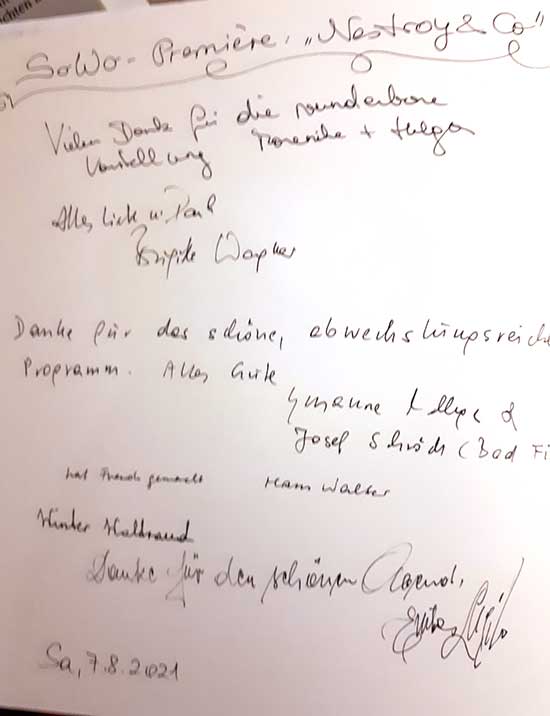 ichten
SoWo-Première, „Nestroy & Co"
Vielen Dank für die wunderbare
Vorstellung + Helga
Alles Liebe u. Dank
Brigitte Wagner
Danke für das schöne, abwechslungsreiche
Programm. Alles Gute
Susanne &
Josef (Bad Fi
hat Freude gemacht Hans Walter
Danke für den schönen Abend,
Sa, 7.8.2021